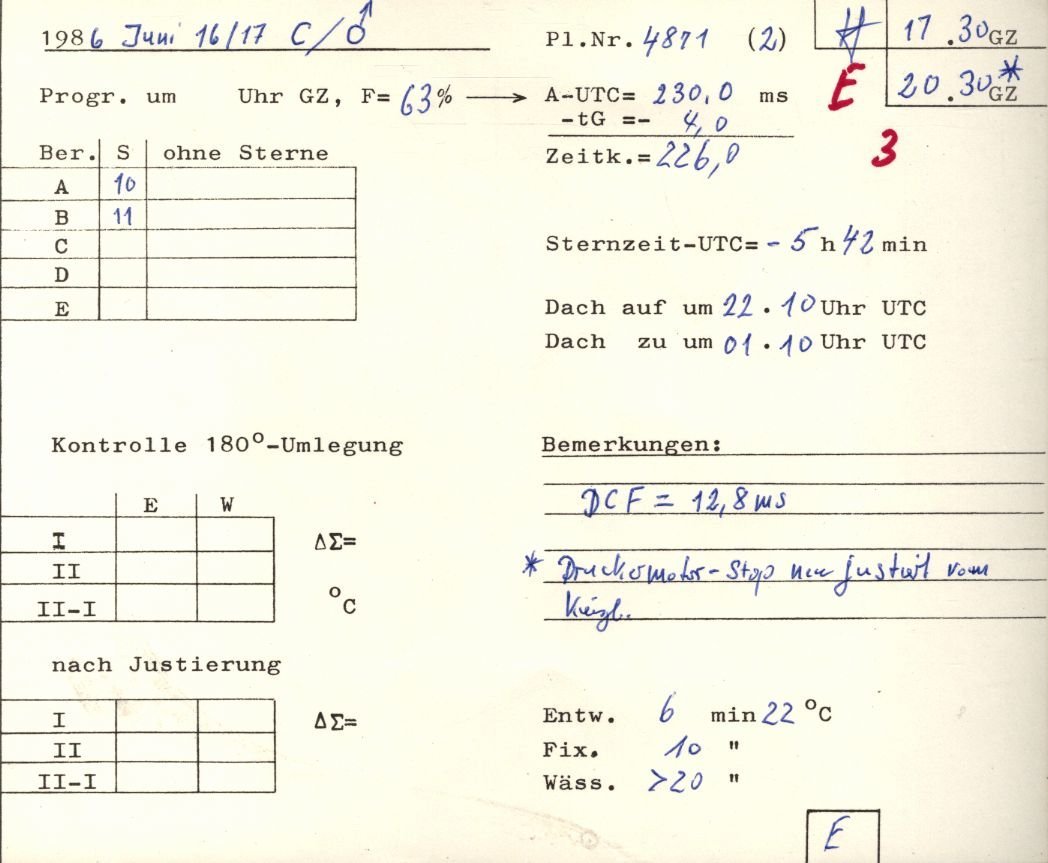 1986 Juni 16/17 C/♂
Pl.Nr. 4871 (2)
# 17.30 GZ
E 20.30* GZ
3
Progr. um Uhr GZ, F= 63% → A-UTC= 230,0 ms
-tG =- 4,0
Zeitk.= 226,0
Ber. S ohne Sterne
A 10
B 11
C
D
E
Sternzeit-UTC= - 5 h 42 min
Dach auf um 22 . 10 Uhr UTC
Dach zu um 01 . 10 Uhr UTC
Kontrolle 180°-Umlegung
E W
I ΔΣ=
II
II-I °C
nach Justierung
I ΔΣ=
II
II-I
Bemerkungen:
DCF = 12,8 ms
* Druckermotor-Stop neu justiert vom
Entw. 6 min 22 °C
Fix. 10 "
Wäss. >20 "
E